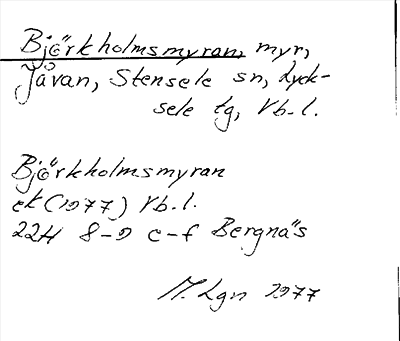 Björkholmsmyran, myr,
Jåvan, Stensele sn, Lyck-
sele tg, Vb.l.
Björkholmsmyran
ek (1977) Vb.l.
22H 8-9 c-f Bergnäs
M. Lgn 1977